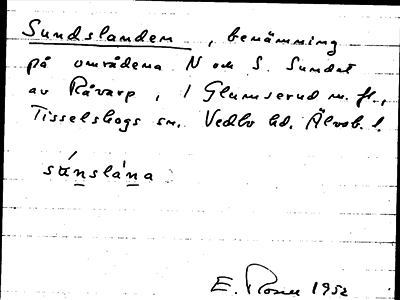 Sundslanden, benämning
på områdena N och S. Sundet
av Råvarp, i Glumserud m. fl.,
Tisselskogs sn. Vedbo hd. Älvsb. l.
súnslàna
E. Rosell 1952